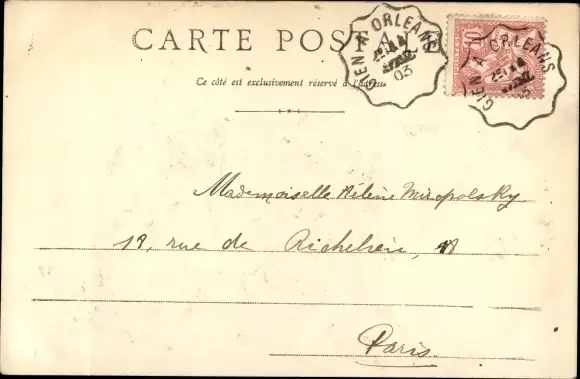 CARTE POSTALE
Ce côté est exclusivement réservé à l'adresse
GIEN A ORLEANS
03
10
GIEN A ORLEANS
03
Mademoiselle Hélène Miropolsky
19, rue de Richelieu,
Paris